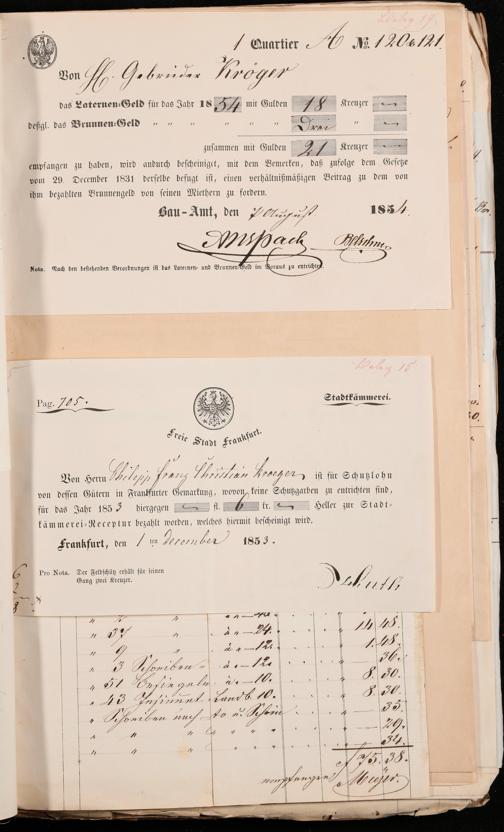 Beleg 14.
1 Quartier A No. 120 & 121.
Von H. Gebrüder Kröger
das Laternen=Geld für das Jahr 1854 mit Gulden 18 Kreuzer —
deßgl. das Brunnen=Geld " " " " " Drei " —
zusammen mit Gulden 21 Kreuzer —
empfangen zu haben, wird andurch bescheiniget, mit dem Bemerken, daß zufolge dem Gesetze
vom 29. December 1831 derselbe befugt ist, einen verhältnißmäßigen Beitrag zu dem von
ihm bezahlten Brunnengeld von seinen Miethern zu fordern.
Bau=Amt, den 7 August 1854.
Anspach
Nota. Nach den bestehenden Verordnungen ist das Laternen= und Brunnen=Geld im Voraus zu entrichten.
Beleg 15
Pag. 705.
Stadtkämmerei.
Freie Stadt Frankfurt.
Von Herrn Philipp Franz Christian Kroeger ist für Schutzlohn
von dessen Gütern in Frankfurter Gemarkung, wovon keine Schutzgarben zu entrichten sind,
für das Jahr 1853 hiergegen — fl. 6 kr. — Heller zur Stadt=
kämmerei=Receptur bezahlt worden, welches hiermit bescheinigt wird.
Frankfurt, den 1 ten December 1853.
Pro Nota. Der Feldschütz erhält für seinen
Gang zwei Kreuzer.
" 37 " à "—24. 14.48.
" 9 " à "—12. 1.48.
" 3 Schreiben " à "—12. " 36.
" 51 à "—10. " 8.30.
" 43 Insinuat. 10. " 8.30.
" Schreiben nach " 35.
" " " " 29.
" " " " 34.
f 75.38.
empfangen Meyer.